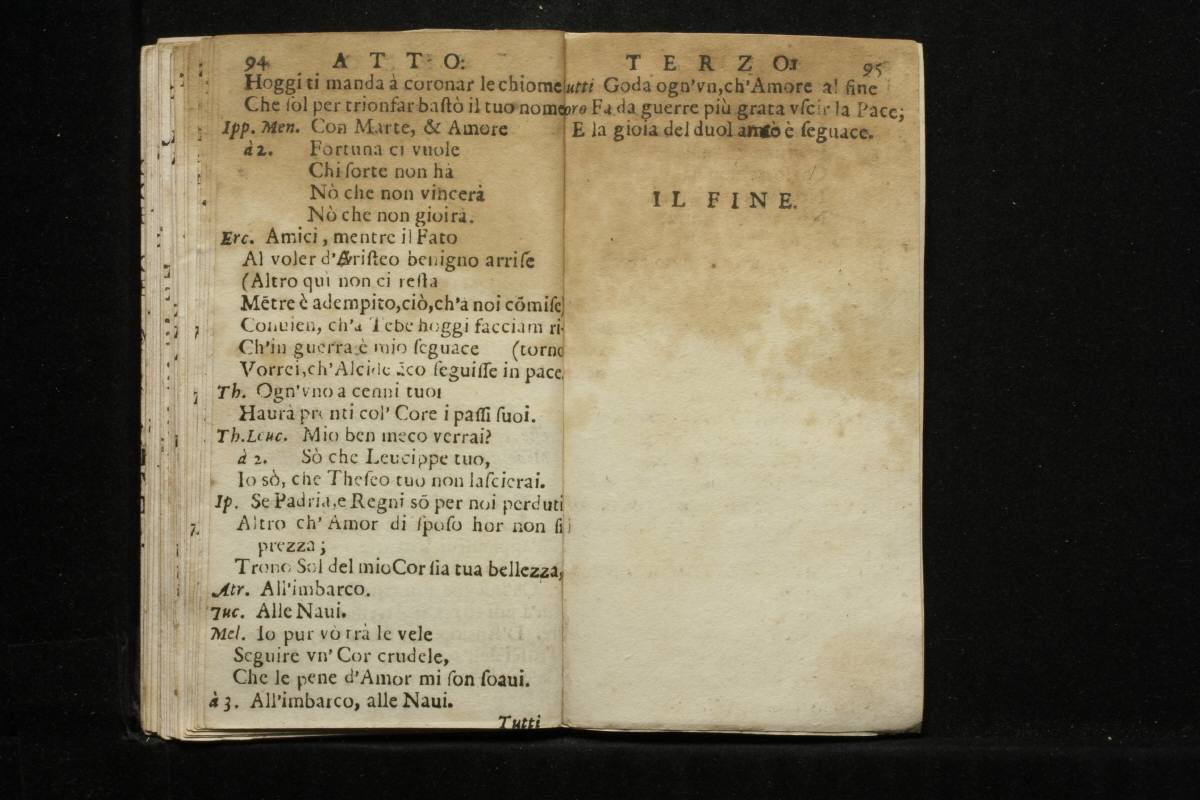 94 ATTO:
Hoggi ti manda à coronar le chiome
Che ſol per trionfar baſtò il tuo nome
Ipp. Men. Con Marte, & Amore
à 2. Fortuna ci vuole
Chi ſorte non hà
Nò che non vincerà
Nò che non gioirà.
Erc. Amici, mentre il Fato
Al voler d'Ariſteo benigno arriſe
(Altro quì non ci reſta
Mẽtre è adempito, ciò, ch'à noi cõmiſe)
Conuien, ch'a Tebe hoggi facciam ri-
Ch'in guerra è mio ſeguace (torno
Vorrei, ch'Alcide ãco ſeguiſſe in pace.
Th. Ogn'vno a cenni tuoi
Haurà pronti col' Core i paſſi ſuoi.
Th. Leuc. Mio ben meco verrai?
à 2. Sò che Leucippe tuo,
Io sò, che Theſeo tuo non laſcierai.
Ip. Se Padria, e Regni sõ per noi perduti
Altro ch' Amor di ſpoſo hor non ſi
prezza;
Trono Sol del mio Cor ſia tua bellezza,
Atr. All'imbarco.
Juc. Alle Naui.
Mel. Io pur vò trà le vele
Seguire vn' Cor crudele,
Che le pene d'Amor mi ſon ſoaui.
à 3. All'imbarco, alle Naui.
Tutti
TERZO. 95
utti Goda ogn'vn, ch'Amore al fine
oro Fa da guerre più grata vſcir la Pace;
E la gioia del duol è ſeguace.
IL FINE.